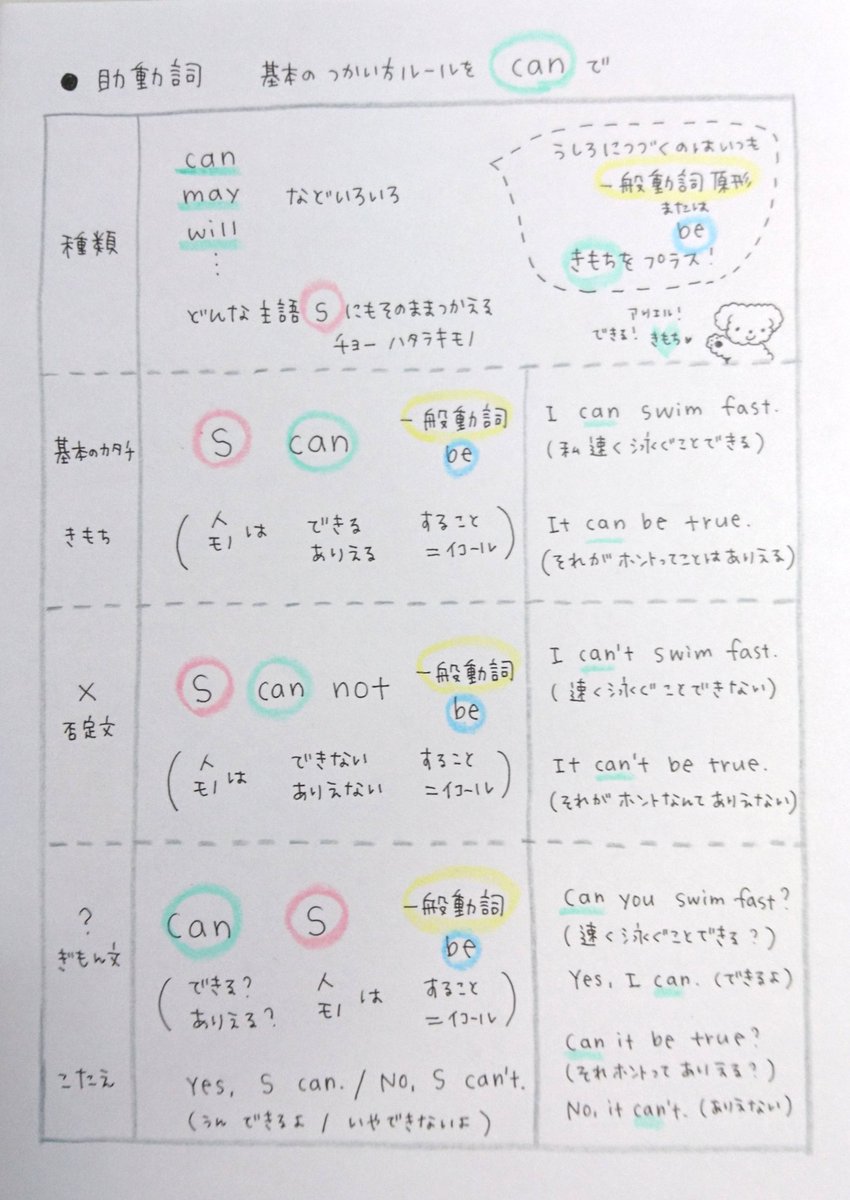 ● 助動詞 基本の つかい方ルールを can で
種類
can
may などいろいろ
will
⋮
どんな 主語 S にもそのままつかえる
チョー ハタラキモノ
うしろにつづくのはいつも
一般動詞 原形
または
be
きもちを プラス!
アリエル!
できる! きもち♥
基本のカタチ
S can 一般動詞
be
I can swim fast.
(私 速く泳ぐことできる)
きもち
(人 モノ は できる ありえる すること =イコール)
It can be true.
(それが ホントってことは ありえる)
×
否定文
S can not 一般動詞
be
I can't swim fast.
(速く泳ぐことできない)
(人 モノ は できない ありえない すること =イコール)
It can't be true.
(それが ホントなんて ありえない)
?
ぎもん文
Can S 一般動詞
be
Can you swim fast?
(速く泳ぐことできる?)
Yes, I can. (できるよ)
(できる? ありえる? 人 モノ は すること =イコール)
Can it be true?
(それ ホントって ありえる?)
No, it can't. (ありえない)
こたえ
Yes, S can. / No, S can't.
(うん できるよ / いや できないよ)